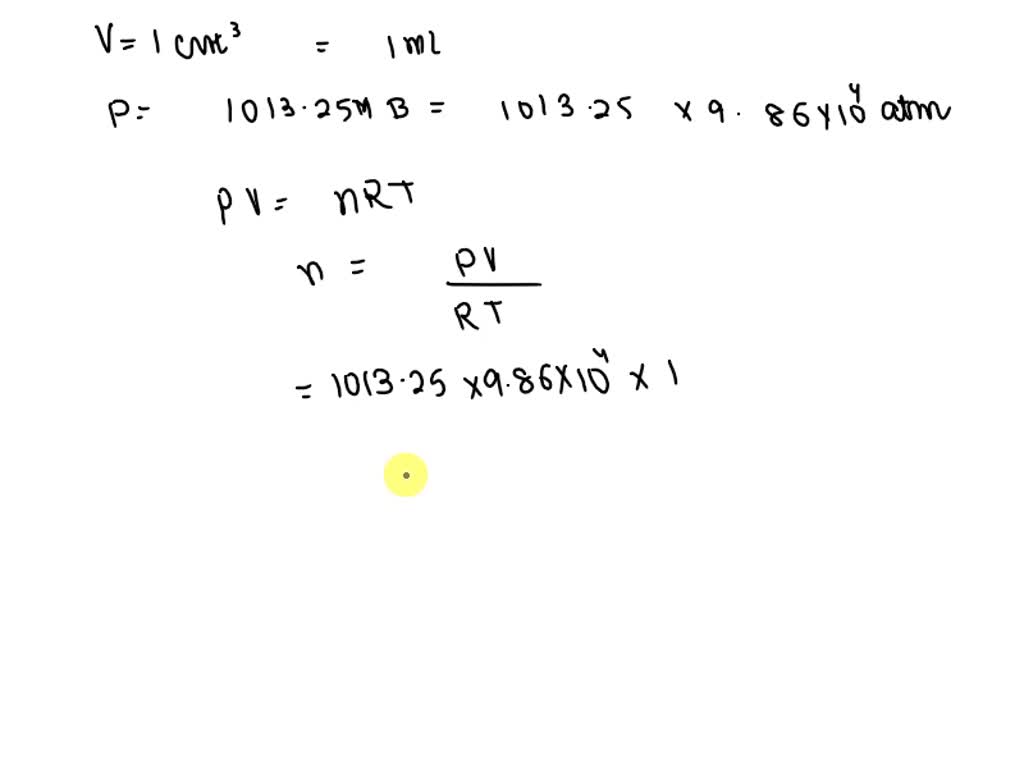 V = 1 cm³ = 1 ml
P = 1013.25 MB = 1013.25 × 9.86 × 10⁴ atm
PV = nRT
n = PV / RT
= 1013.25 × 9.86 × 10⁴ × 1